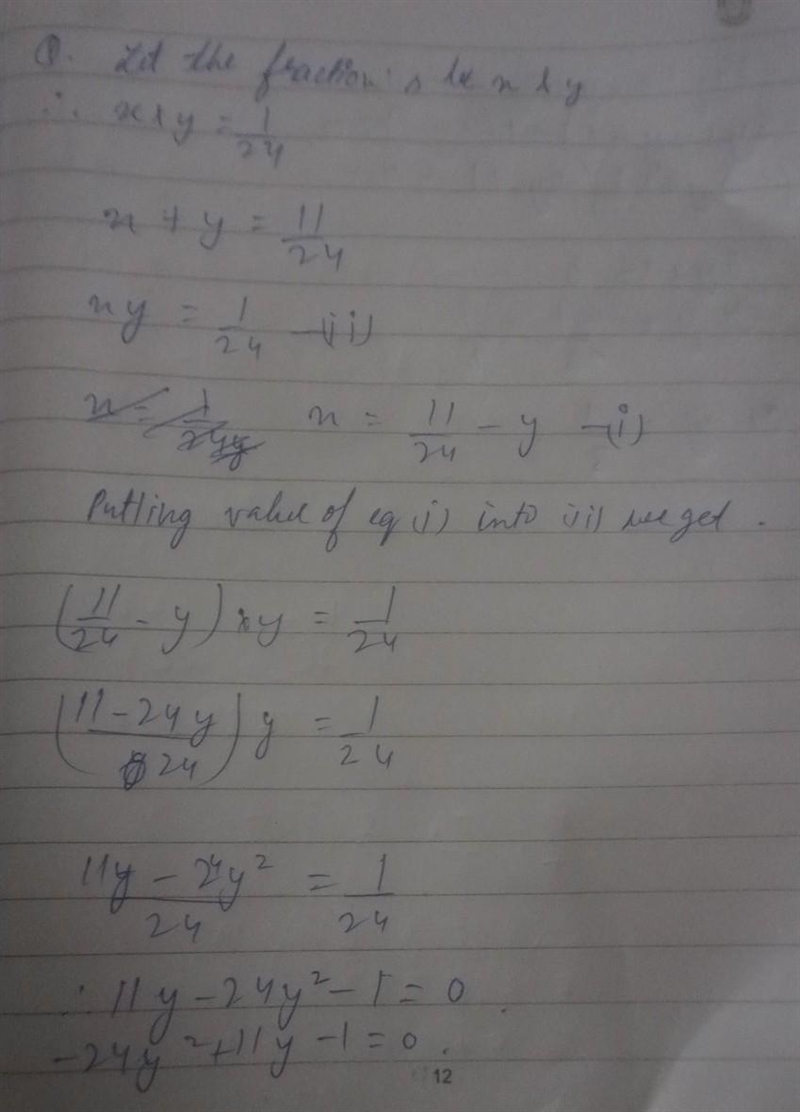 Q. Let the fraction's be x & y
∴ x × y = 1/24
x + y = 11/24
xy = 1/24 —(ii)
x = 11/24 - y —(i)
Putting value of eq (i) into (ii) we get.
(11/24 - y) × y = 1/24
((11 - 24y)/24) y = 1/24
(11y - 24y²)/24 = 1/24
∴ 11y - 24y² - 1 = 0.
-24y² + 11y - 1 = 0.
12